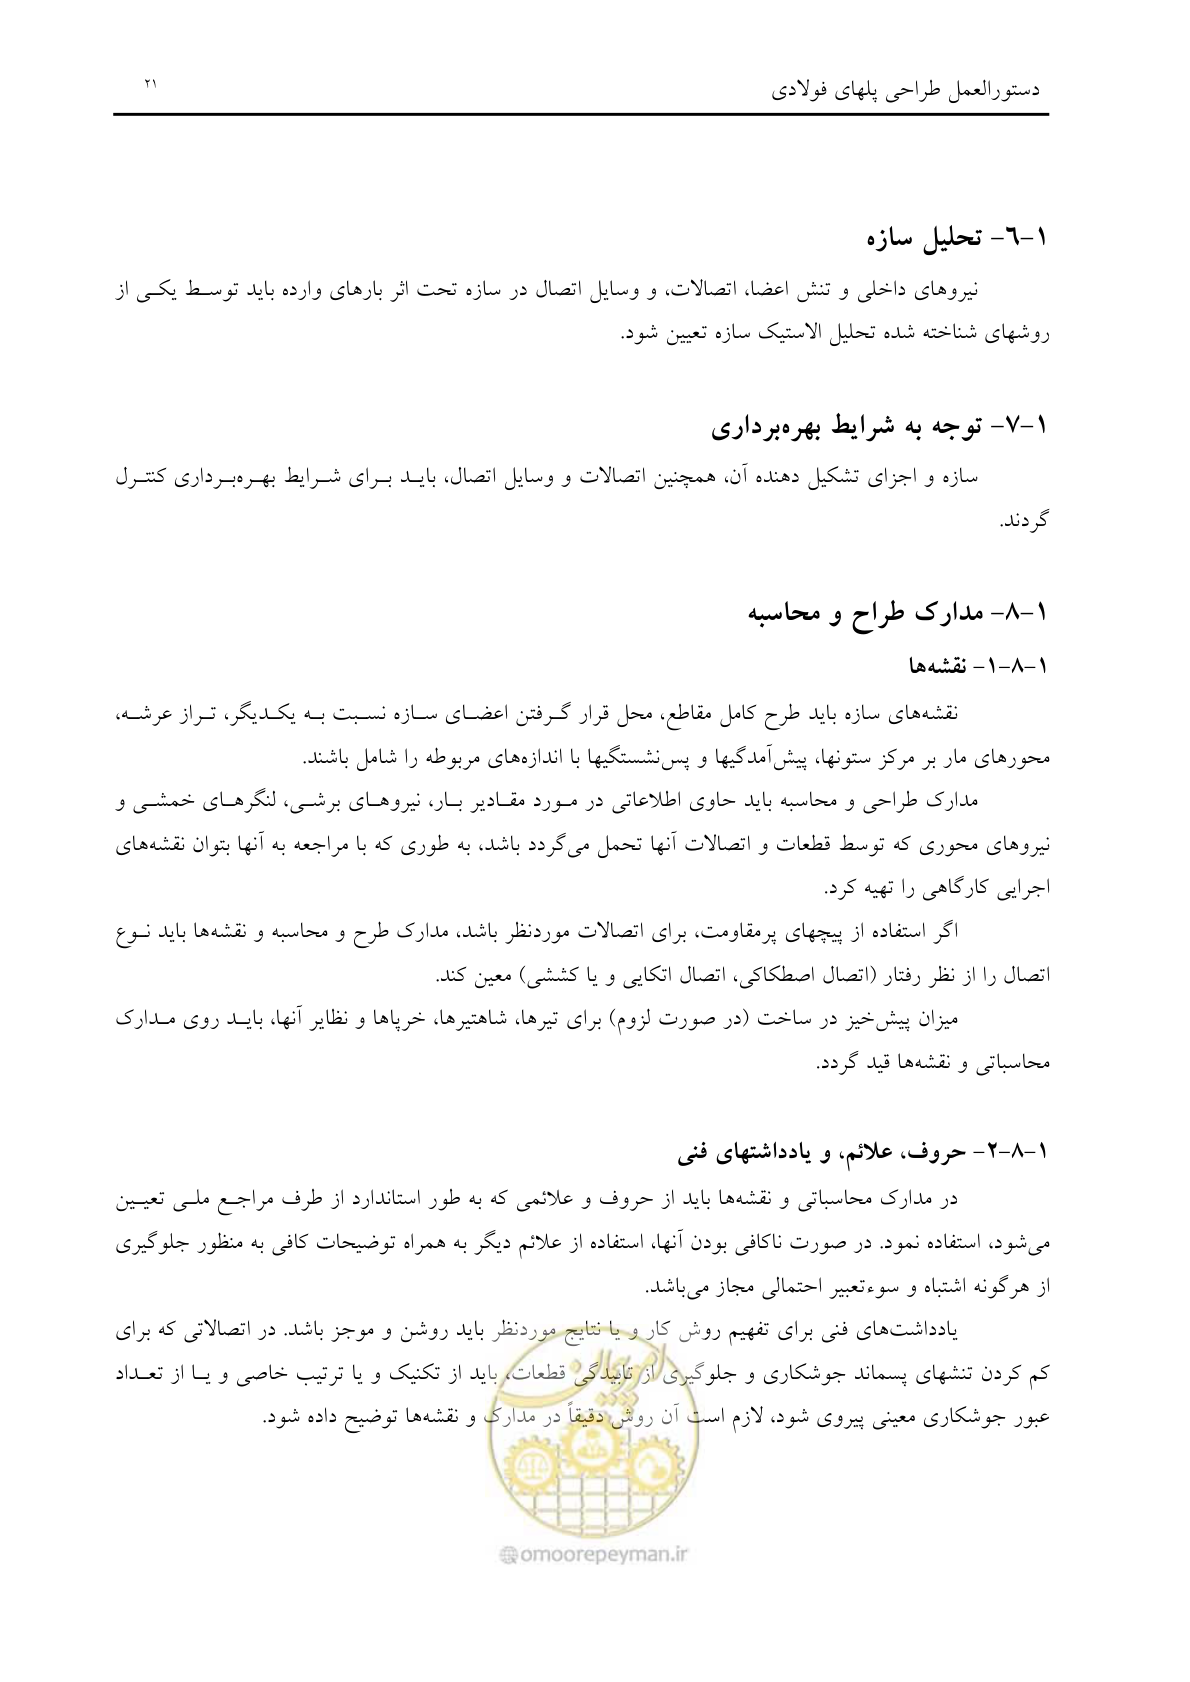 دستورالعمل طراحی پلهای فولادی
۲۱
۱-۶- تحلیل سازه
نیروهای داخلی و تنش اعضا، اتصالات، و وسایل اتصال در سازه تحت اثر بارهای وارده باید توسط یکی از
روشهای شناخته شده تحلیل الاستیک سازه تعیین شود.
۱-۷- توجه به شرایط بهره‌برداری
سازه و اجزای تشکیل دهنده آن، همچنین اتصالات و وسایل اتصال، باید برای شرایط بهره‌برداری کنترل
گردند.
۱-۸- مدارک طراح و محاسبه
۱-۸-۱- نقشه‌ها
نقشه‌های سازه باید طرح کامل مقاطع، محل قرار گرفتن اعضای سازه نسبت به یکدیگر، تراز عرشه،
محورهای مار بر مرکز ستونها، پیش‌آمدگیها و پس‌نشستگیها با اندازه‌های مربوطه را شامل باشند.
مدارک طراحی و محاسبه باید حاوی اطلاعاتی در مورد مقادیر بار، نیروهای برشی، لنگرهای خمشی و
نیروهای محوری که توسط قطعات و اتصالات آنها تحمل می‌گردد باشد، به طوری که با مراجعه به آنها بتوان نقشه‌های
اجرایی کارگاهی را تهیه کرد.
اگر استفاده از پیچهای پرمقاومت، برای اتصالات موردنظر باشد، مدارک طرح و محاسبه و نقشه‌ها باید نوع
اتصال را از نظر رفتار (اتصال اصطکاکی، اتصال اتکایی و یا کششی) معین کند.
میزان پیش‌خیز در ساخت (در صورت لزوم) برای تیرها، شاهتیرها، خرپاها و نظایر آنها، باید روی مدارک
محاسباتی و نقشه‌ها قید گردد.
۱-۸-۲- حروف، علائم، و یادداشتهای فنی
در مدارک محاسباتی و نقشه‌ها باید از حروف و علائمی که به طور استاندارد از طرف مراجع ملی تعیین
می‌شود، استفاده نمود. در صورت ناکافی بودن آنها، استفاده از علائم دیگر به همراه توضیحات کافی به منظور جلوگیری
از هرگونه اشتباه و سوءتعبیر احتمالی مجاز می‌باشد.
یادداشت‌های فنی برای تفهیم روش کار و یا نتایج موردنظر باید روشن و موجز باشد. در اتصالاتی که برای
کم کردن تنشهای پسماند جوشکاری و جلوگیری از تابیدگی قطعات، باید از تکنیک و یا ترتیب خاصی و یا از تعداد
عبور جوشکاری معینی پیروی شود، لازم است آن روش دقیقاً در مدارک و نقشه‌ها توضیح داده شود.
امور پیمان
omoorepeyman.ir